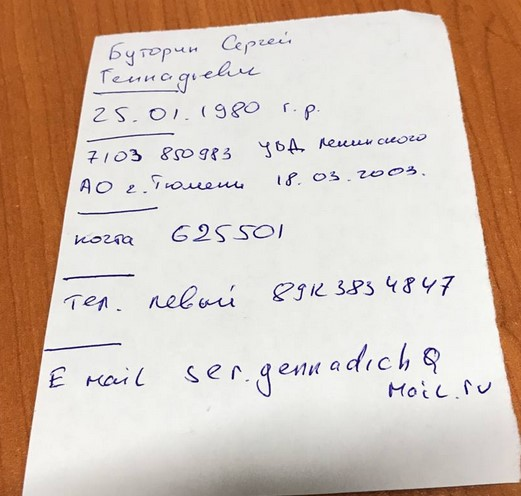 Буторин Сергей
Геннадьевич
25.01.1980 г.р.
7103 850983 УВД Ленинского
АО г. Тюмени 18.03.2003.
почта 625501
тел. левый 89
E mail ser.gennadich@
mail.ru